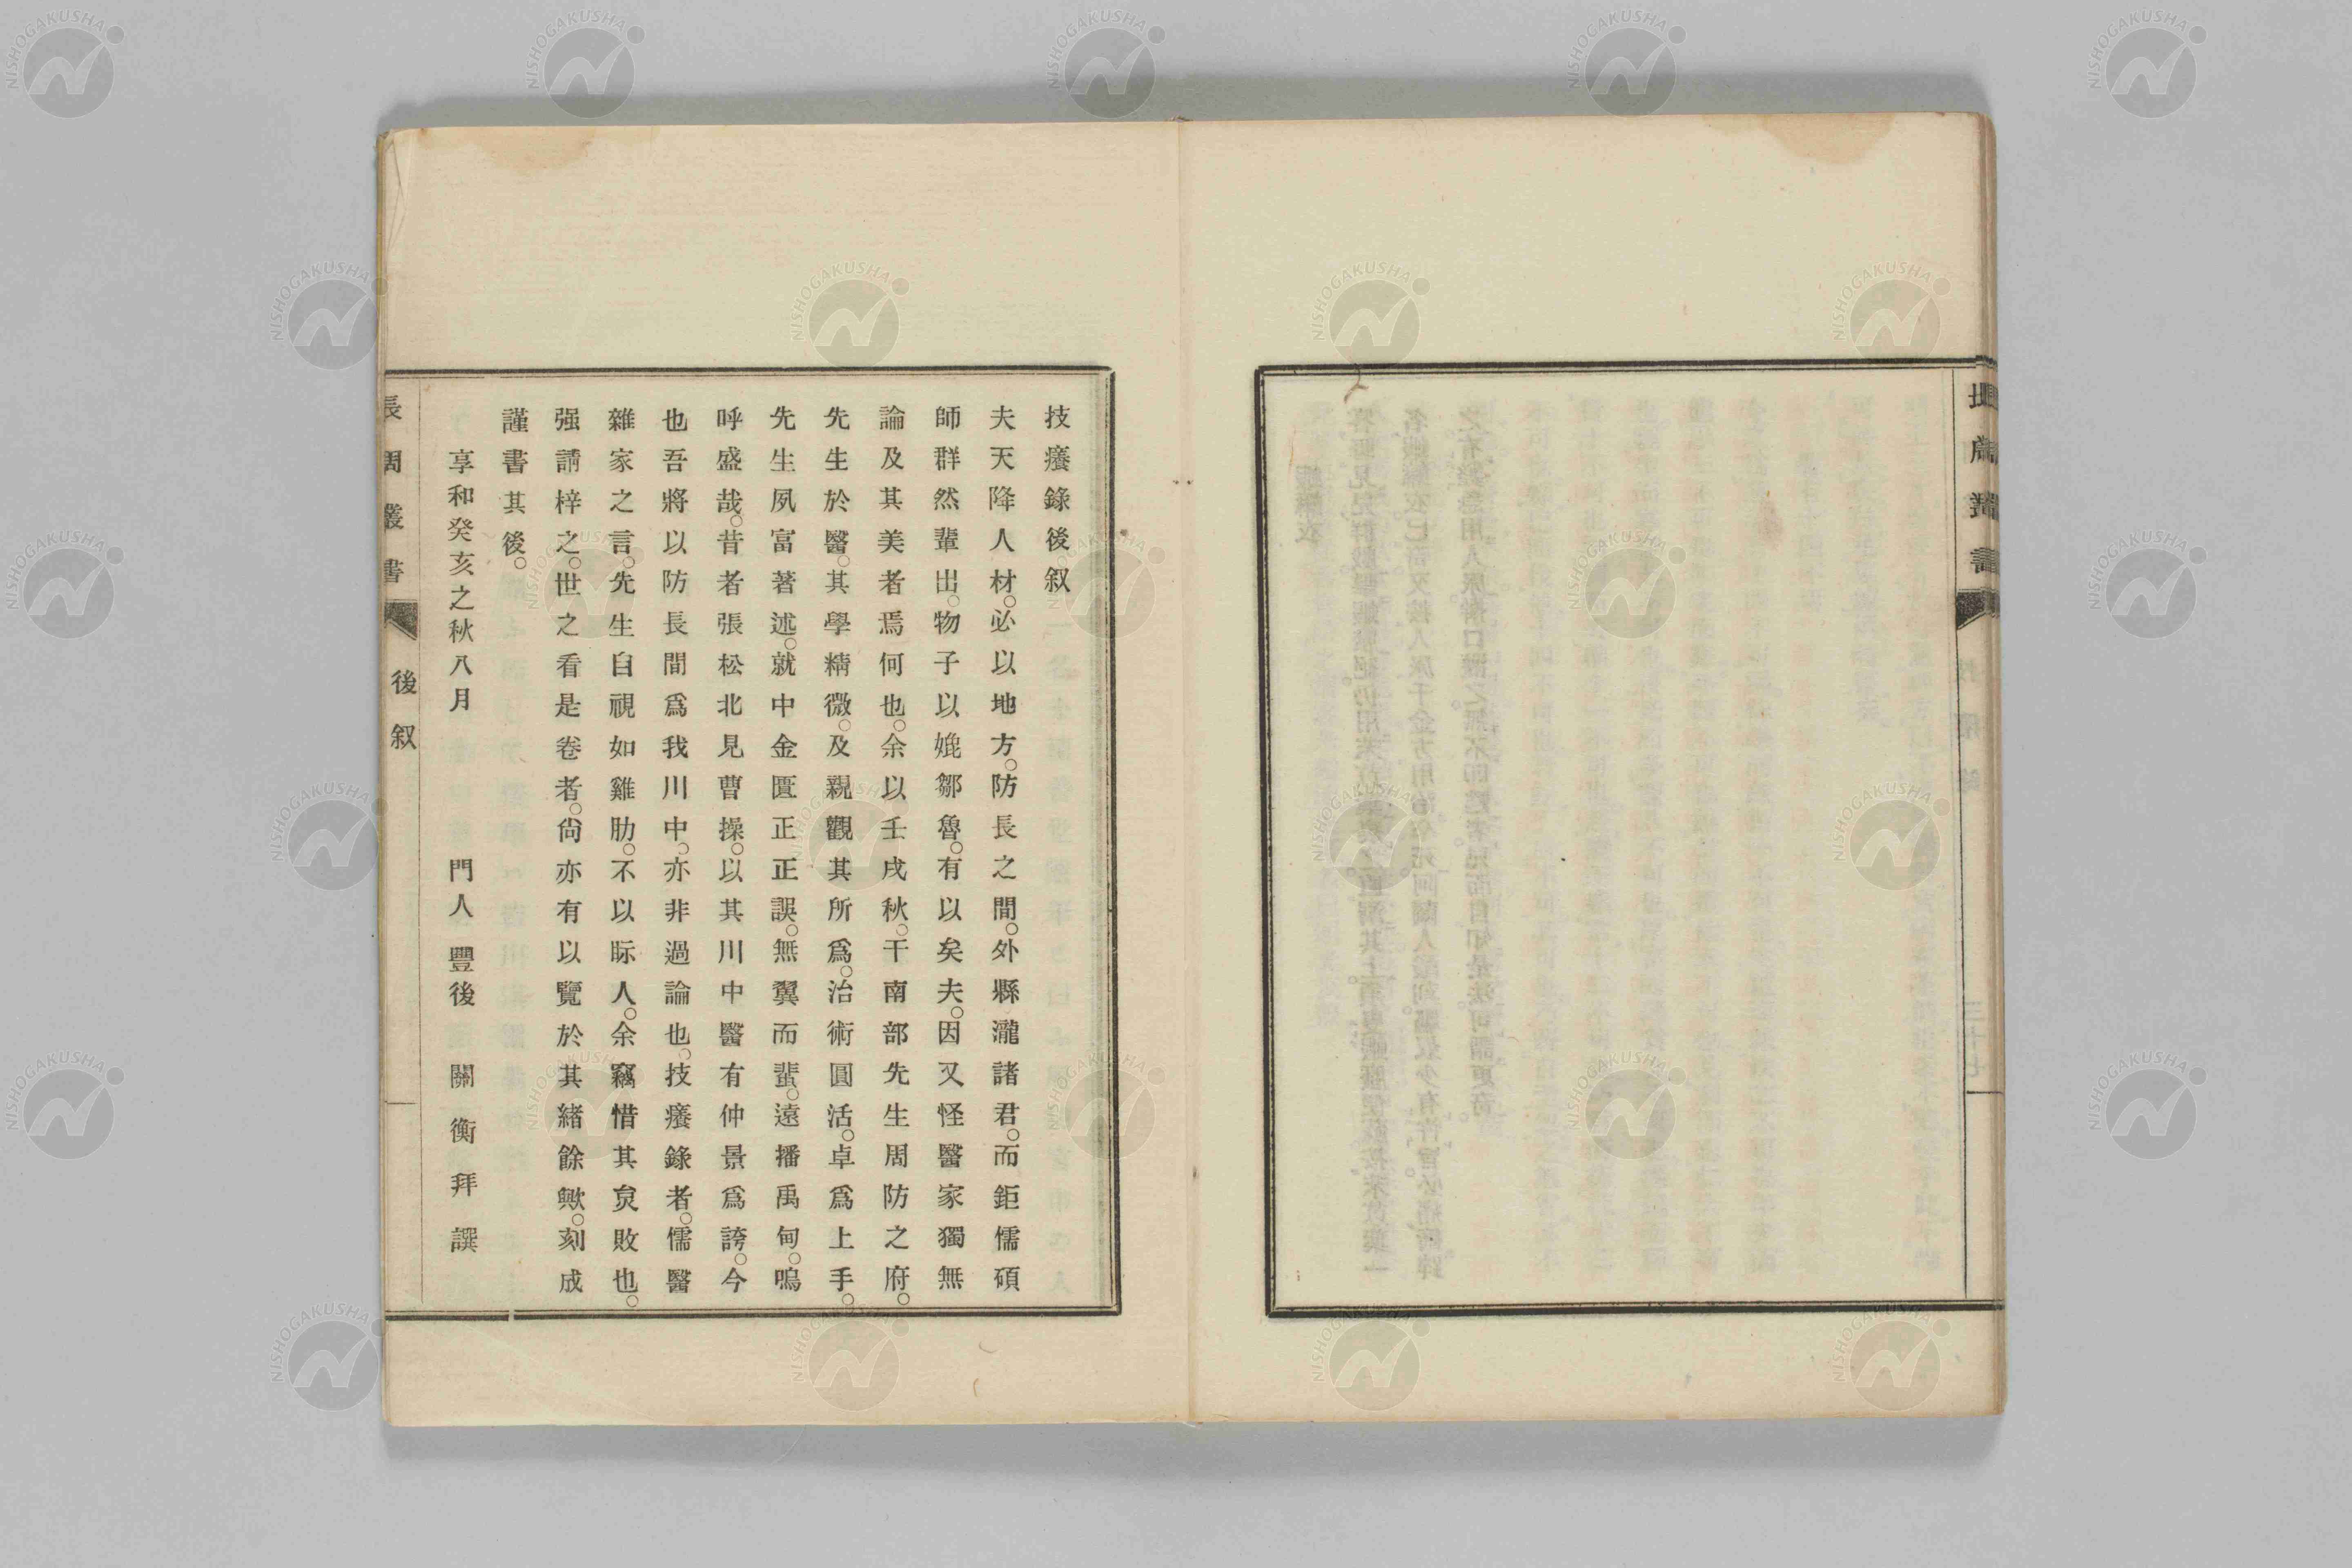 技癢錄後叙
夫天降人材。必以地方。防長之間。外縣瀧諸君。而鉅儒碩
師群然輩出。物子以媲鄒魯。有以矣夫。因又怪醫家獨無
論及其美者焉何也。余以壬戌秋。干南部先生周防之府。
先生於醫。其學精微。及親觀其所爲。治術圓活。卓爲上手。
先生夙富著述。就中金匱正正誤。無翼而蜚。遠播禹甸。嗚
呼盛哉。昔者張松北見曹操。以其川中醫有仲景爲誇。今
也吾將以防長間爲我川中。亦非過論也。技癢錄者。儒醫
雜家之言。先生自視如雞肋。不以眎人。余竊惜其負敗也。
强請梓之。世之看是卷者。尙亦有以覽於其緒餘歟。刻成
謹書其後。
享和癸亥之秋八月 門人 豐後 關衡拜譔
長周叢書 後叙
NISHOGAKUSHA